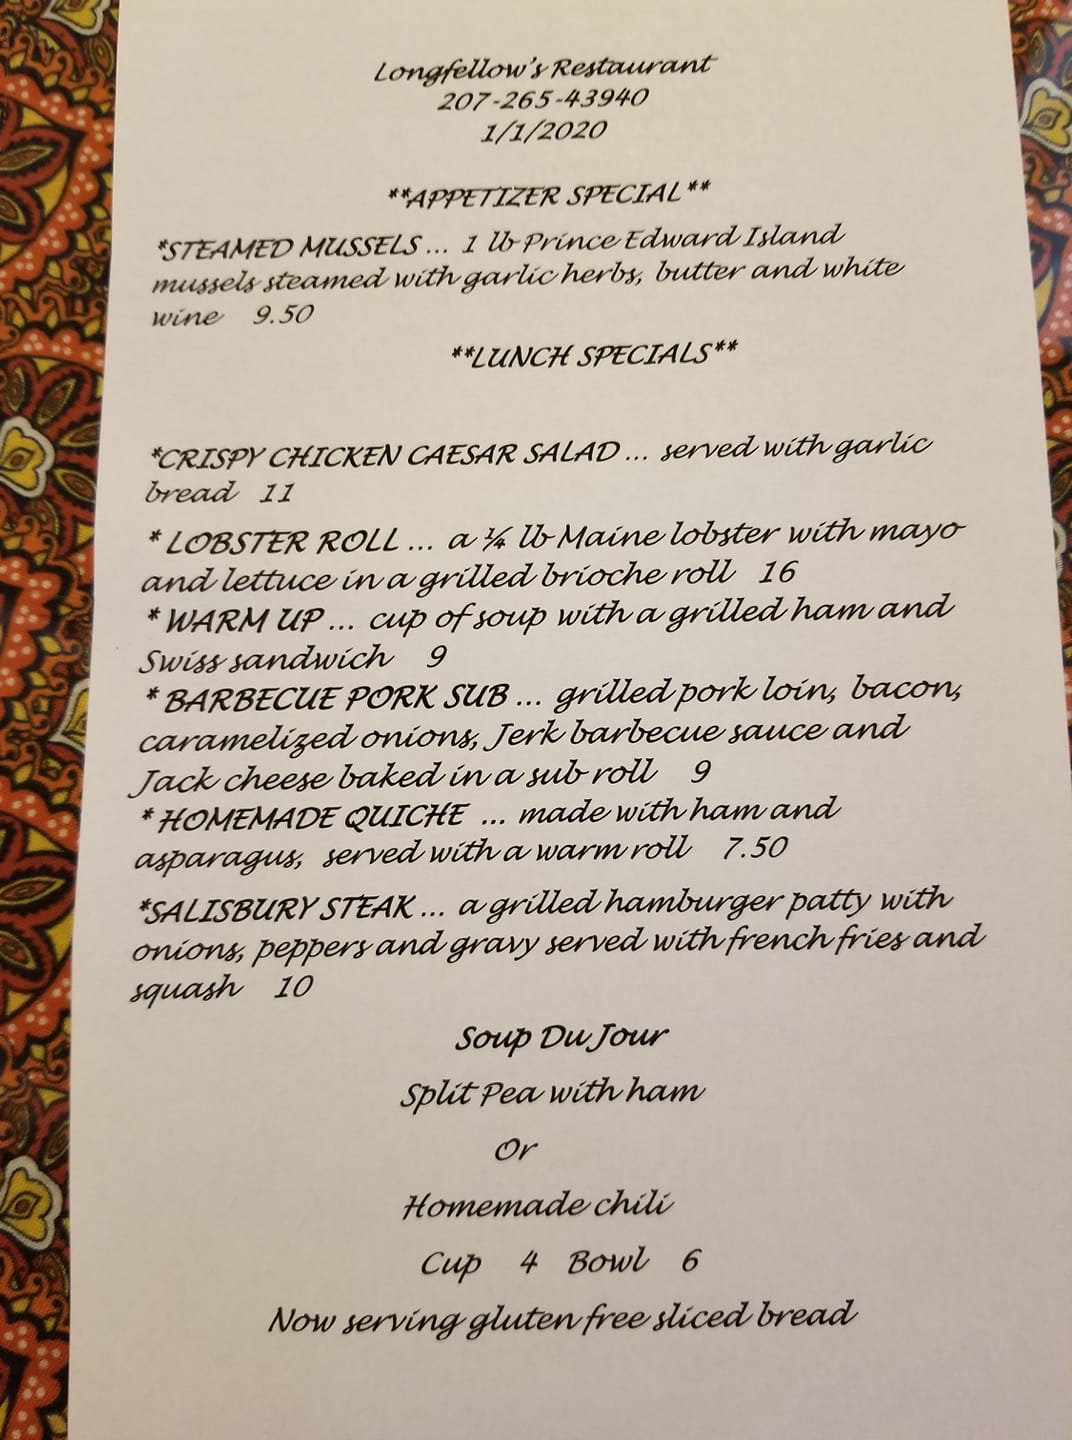 Longfellow's Restaurant
207-265-43940
1/1/2020
**APPETIZER SPECIAL**
*STEAMED MUSSELS... 1 lb Prince Edward Island
mussels steamed with garlic herbs, butter and white
wine 9.50
**LUNCH SPECIALS**
*CRISPY CHICKEN CAESAR SALAD... served with garlic
bread 11
* LOBSTER ROLL ... a ¼ lb Maine lobster with mayo
and lettuce in a grilled brioche roll 16
* WARM UP ... cup of soup with a grilled ham and
Swiss sandwich 9
* BARBECUE PORK SUB ... grilled pork loin, bacon,
caramelized onions, Jerk barbecue sauce and
Jack cheese baked in a sub roll 9
* HOMEMADE QUICHE ... made with ham and
asparagus, served with a warm roll 7.50
*SALISBURY STEAK ... a grilled hamburger patty with
onions, peppers and gravy served with french fries and
squash 10
Soup Du Jour
Split Pea with ham
Or
Homemade chili
Cup 4 Bowl 6
Now serving gluten free sliced bread